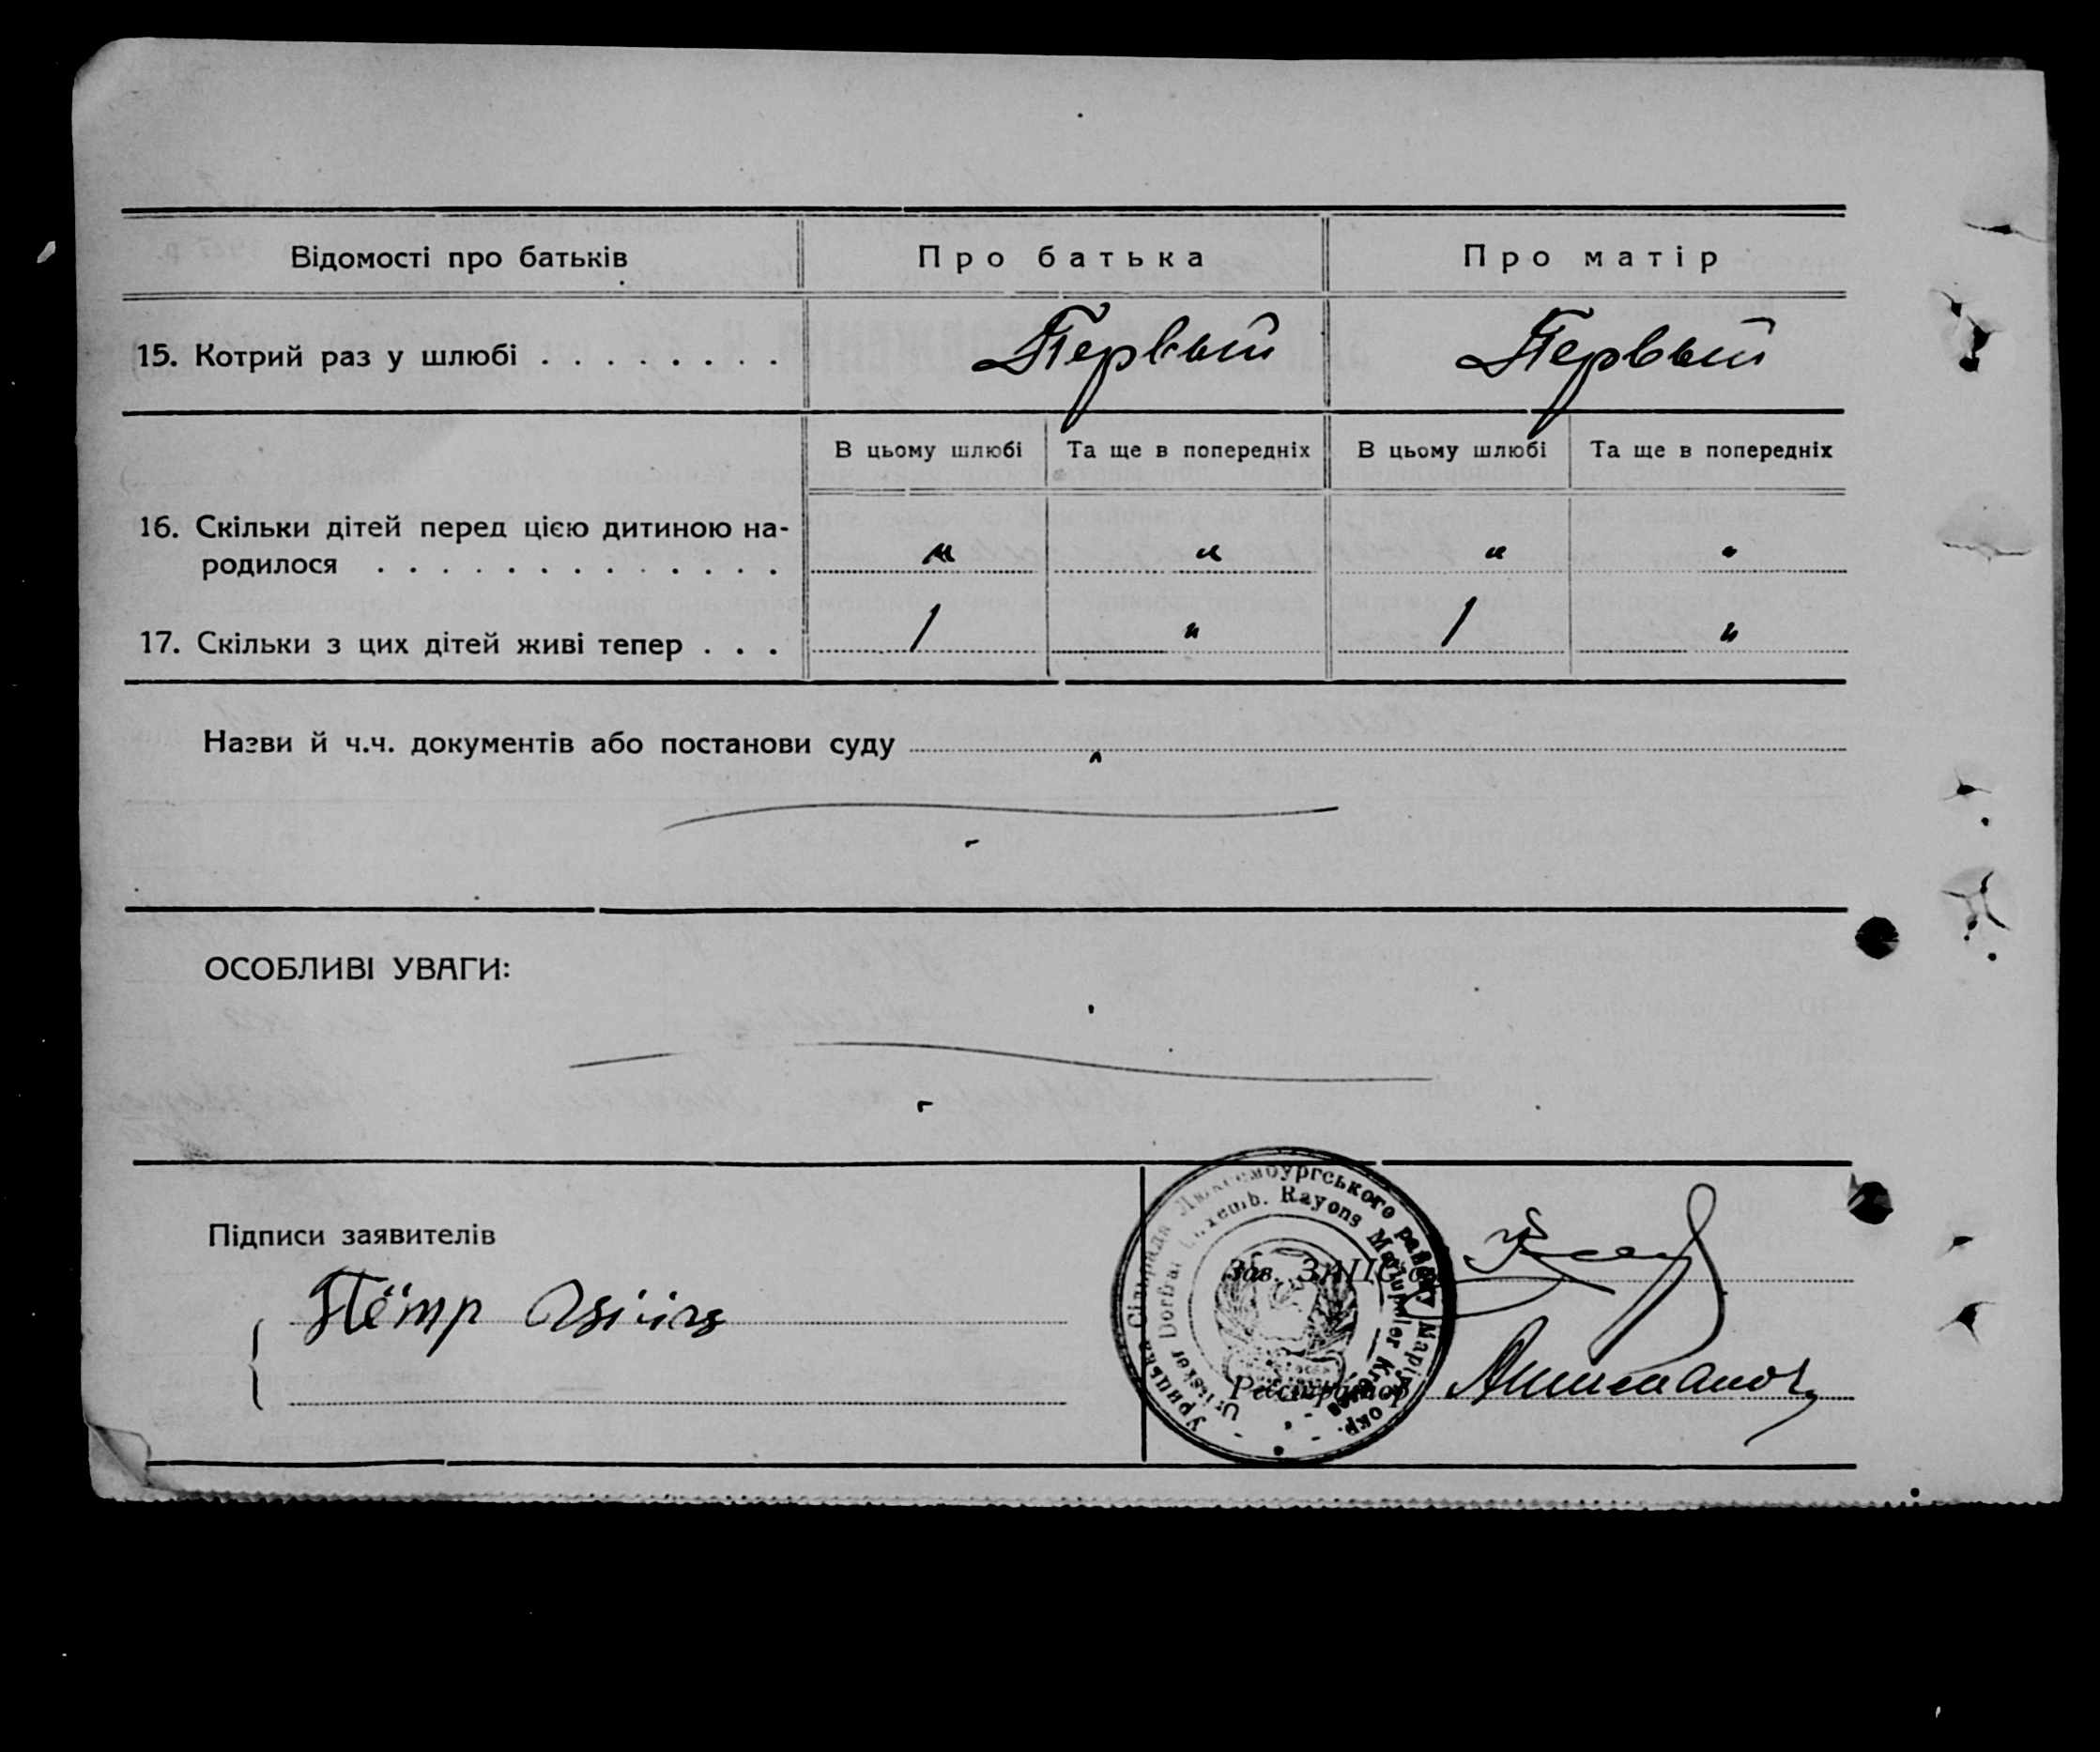 Відомості про батьків Про батька Про матір
15. Котрий раз у шлюбі . . . . . . . . Первый Первый
В цьому шлюбі Та ще в попередніх В цьому шлюбі Та ще в попередніх
16. Скільки дітей перед цією дитиною на-
родилося . . . . . . . . . . . . . „ „ „ „
17. Скільки з цих дітей живі тепер . . . 1 „ 1 „
Назви й ч.ч. документів або постанови суду
ОСОБЛИВІ УВАГИ:
Підписи заявителів
Урицька Сільрада Люксембургського району Маріуп. окр.
Uritsker Dorfrat Luxemb. Rayons Mariupoler Kreises
Зав. ЗАГС'ом
Реєстратор